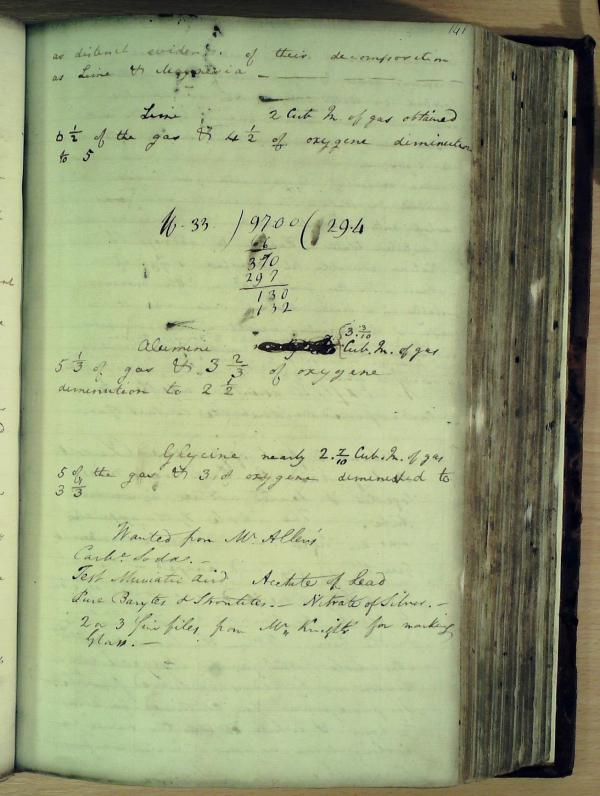 141
as distinct evidence of their decomposition
as Lime & Magnesia —
Lime 2 Cub In. of gas obtained
6 1/2 of the gas & 4 1/2 of oxygene diminution
to 5
33 ) 9700 ( 294
66
370
297
130
132
Alumine 3 3/10 Cub. In. of gas
5 1/3 of gas & 3 2/3 of oxygene
diminution to 2 1/2
Glycine nearly 2. 7/10 Cub. In. of gas
5 of the gas & 3 of oxygene diminished to
3
Wanted from Mr Allen's
Carbe Soda. —
Test Muriatic Acid Acetate of Lead
Pure Barytes & Strontites. — Nitrate of Silver. —
2 or 3 fine files from Mr Knight's for marking
Glass. —